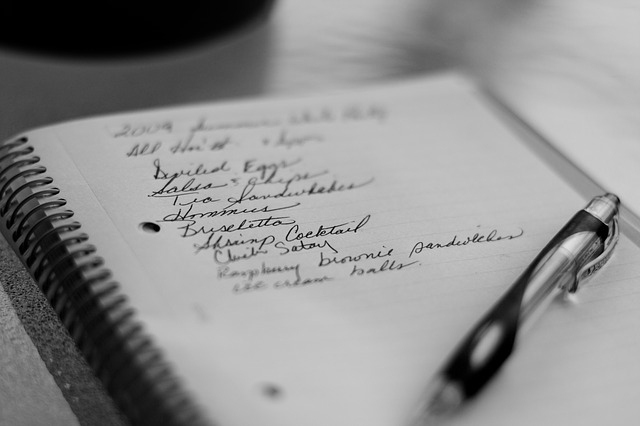 2009 Summer White Party
All Hor'
Deviled Eggs
Salsa & Chips
Tea Sandwiches
Hommus
Bruschetta
Shrimp Cocktail
Satay
Raspberry brownie sandwiches
ice cream balls.